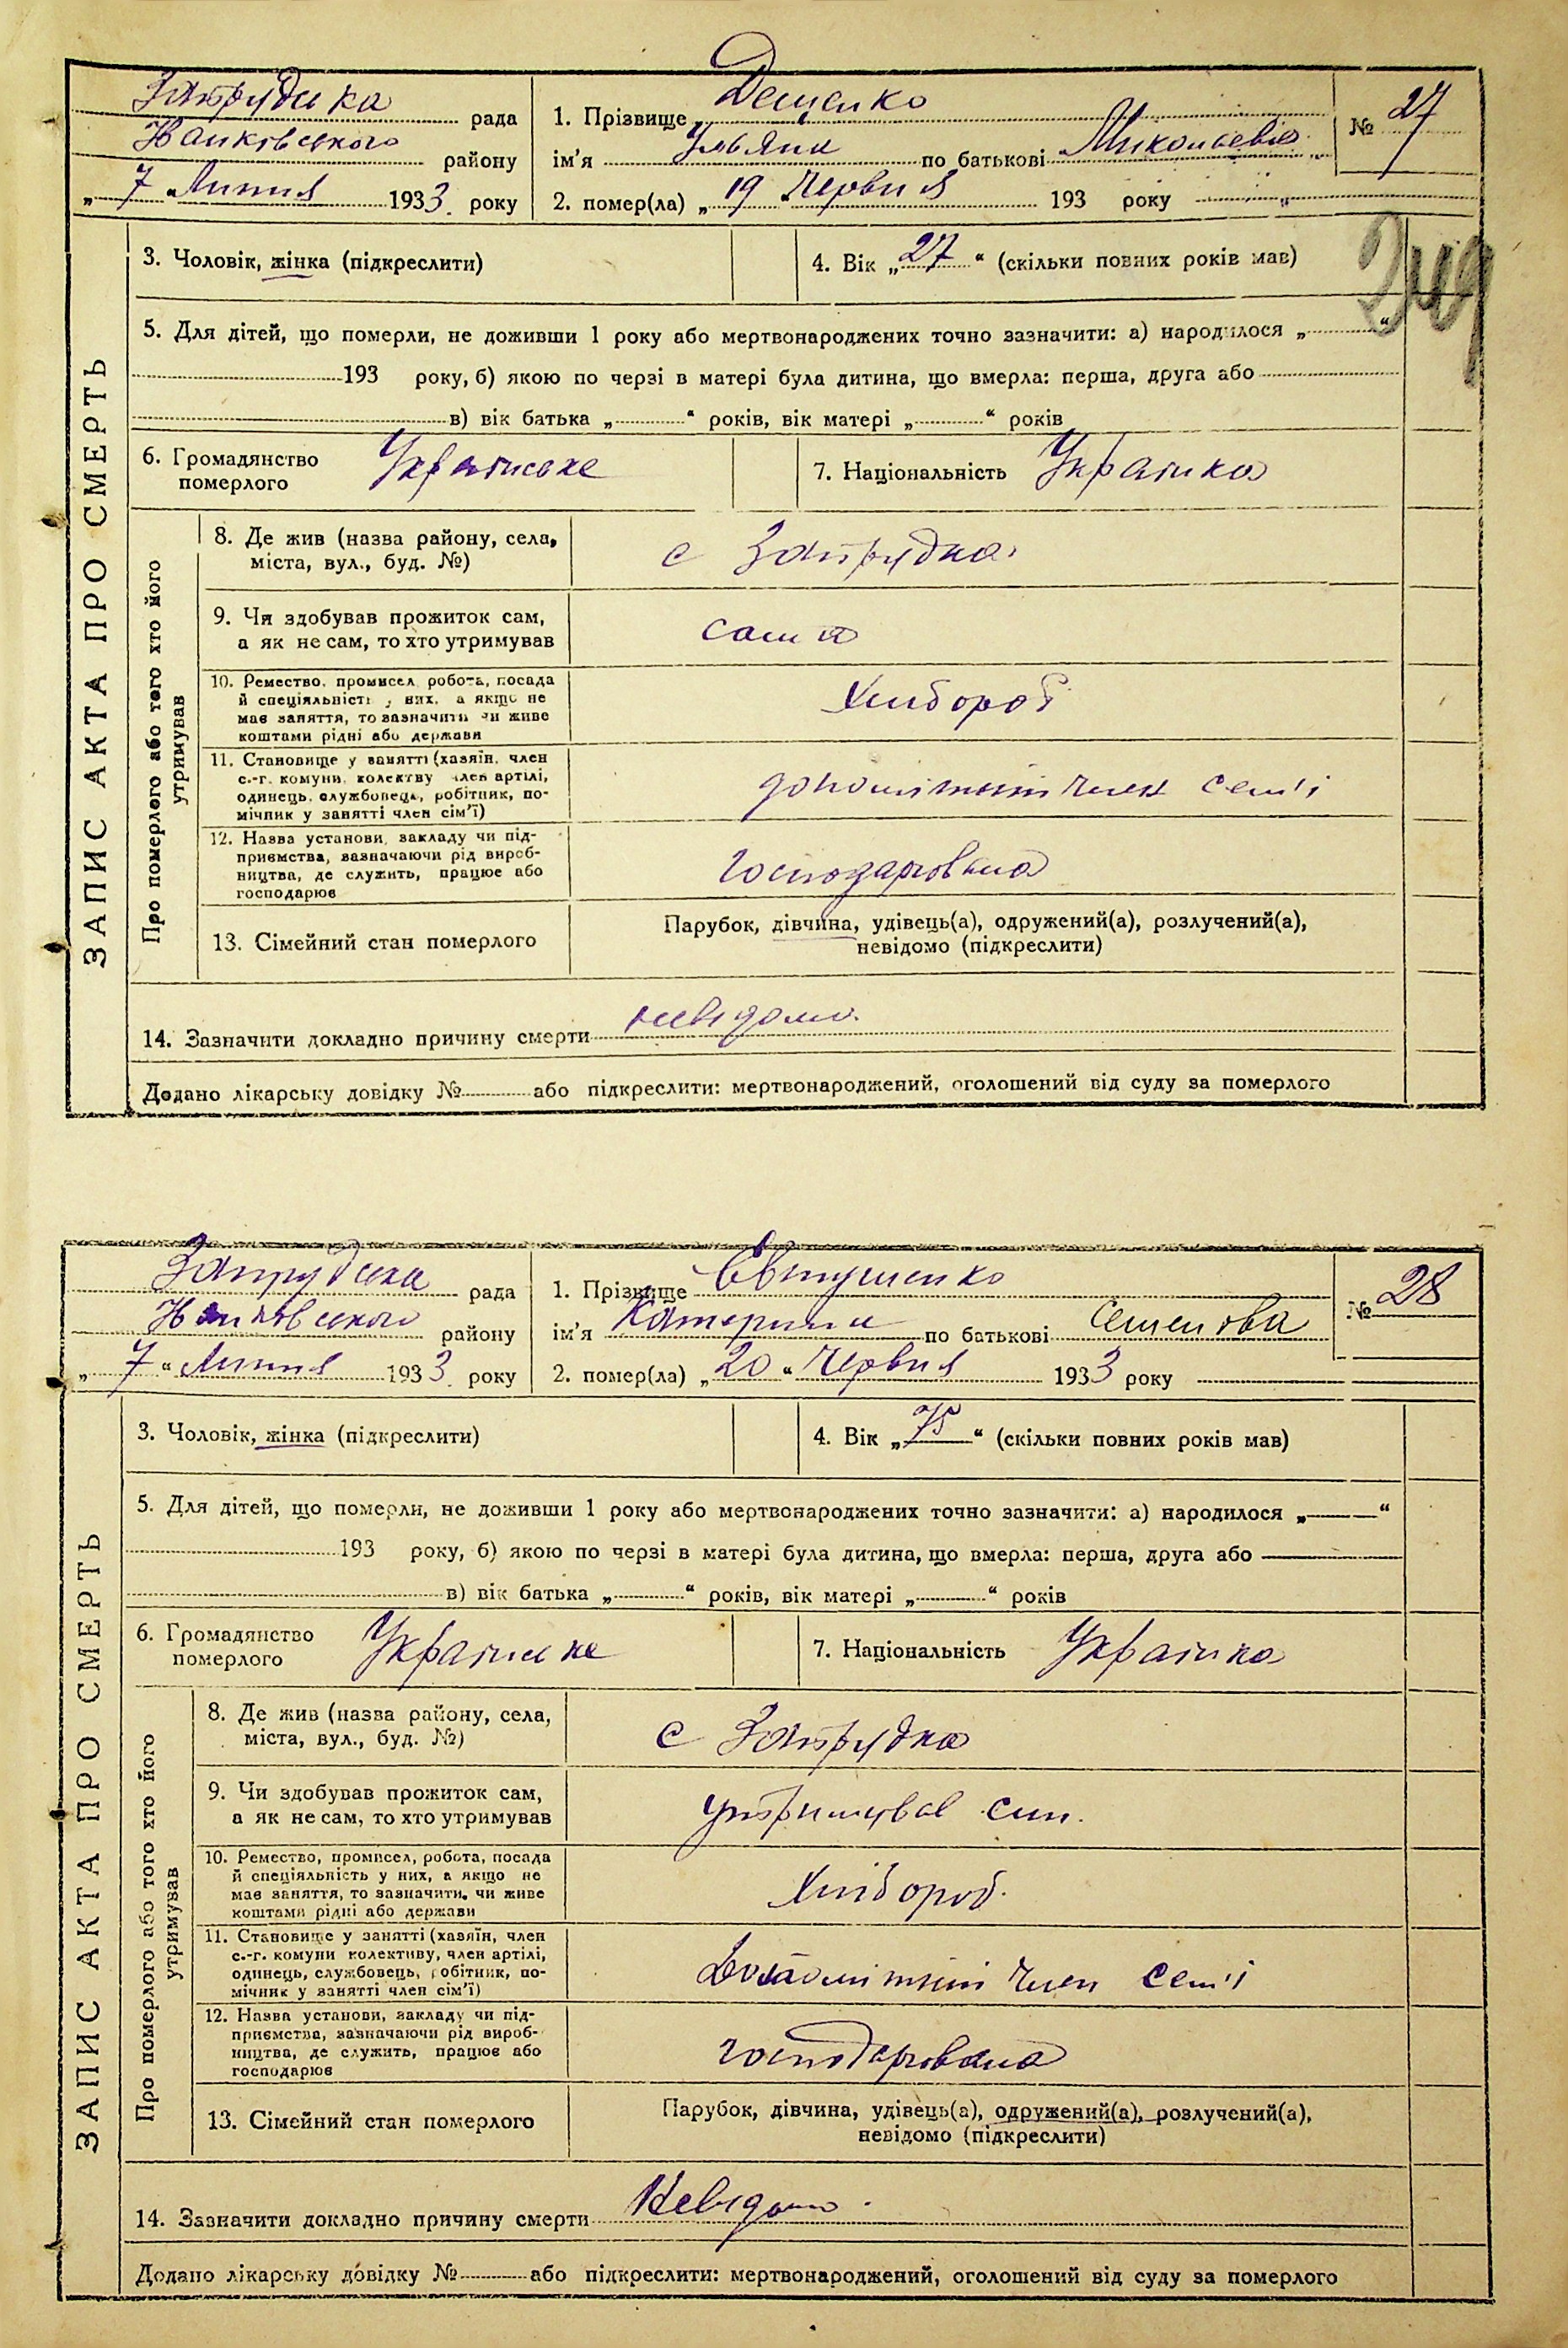 Запрудська рада
1. Прізвище Деценко
№ 27
району
ім'я Уляна по батькові Миколаєвна
„ 7 " Липня 1933 року
2. помер(ла) „ 19 " Червня 193 року
249
ЗАПИС АКТА ПРО СМЕРТЬ
3. Чоловік, жінка (підкреслити)
4. Вік „ 27 " (скільки повних років мав)
5. Для дітей, що померли, не доживши 1 року або мертвонароджених точно зазначити: а) народилося „ "
193 року, б) якою по черзі в матері була дитина, що вмерла: перша, друга або
в) вік батька „ " років, вік матері „ " років
6. Громадянство померлого Українське
7. Національність Українка
Про померлого або того хто його утримував
8. Де жив (назва району, села,
міста, вул., буд. №)
с Запрудка
9. Чи здобував прожиток сам,
а як не сам, то хто утримував
сама
10. Ремество, промисел, робота, посада
й спеціяльність у них, а якщо не
має заняття, то зазначити чи живе
коштами рідні або держави
Хлібороб
11. Становище у занятті (хазяїн, член
с.-г. комуни, колективу член артілі,
одинець, службовець, робітник, по-
мічник у занятті член сім'ї)
допомітний член сем'ї
12. Назва установи, закладу чи під-
приємства, зазначаючи рід вироб-
ництва, де служить, працює або
господарює
господарювала
13. Сімейний стан померлого
Парубок, дівчина, удівець(а), одружений(а), розлучений(а),
невідомо (підкреслити)
14. Зазначити докладно причину смерти невідомо
Додано лікарську довідку № або підкреслити: мертвонароджений, оголошений від суду за померлого
Запрудська рада
1. Прізвище Євтушенко
№ 28
району
ім'я Катерина по батькові Семенова
„ 7 " Липня 1933 року
2. помер(ла) „ 20 " Червня 1933 року
ЗАПИС АКТА ПРО СМЕРТЬ
3. Чоловік, жінка (підкреслити)
4. Вік „ 75 " (скільки повних років мав)
5. Для дітей, що померли, не доживши 1 року або мертвонароджених точно зазначити: а) народилося „ "
193 року, б) якою по черзі в матері була дитина, що вмерла: перша, друга або
в) вік батька „ " років, вік матері „ " років
6. Громадянство померлого Українське
7. Національність Українка
Про померлого або того хто його утримував
8. Де жив (назва району, села,
міста, вул., буд. №)
с Запрудка
9. Чи здобував прожиток сам,
а як не сам, то хто утримував
утримував син.
10. Ремество, промисел, робота, посада
й спеціяльність у них, а якщо не
має заняття, то зазначити, чи живе
коштами рідні або держави
Хлібороб.
11. Становище у занятті (хазяїн, член
с.-г. комуни колективу, член артілі,
одинець, службовець, робітник, по-
мічник у занятті член сім'ї)
член сем'ї
12. Назва установи, закладу чи під-
приємства, зазначаючи рід вироб-
ництва, де служить, працює або
господарює
господарювала
13. Сімейний стан померлого
Парубок, дівчина, удівець(а), одружений(а), розлучений(а),
невідомо (підкреслити)
14. Зазначити докладно причину смерти Невідомо
Додано лікарську довідку № або підкреслити: мертвонароджений, оголошений від суду за померлого